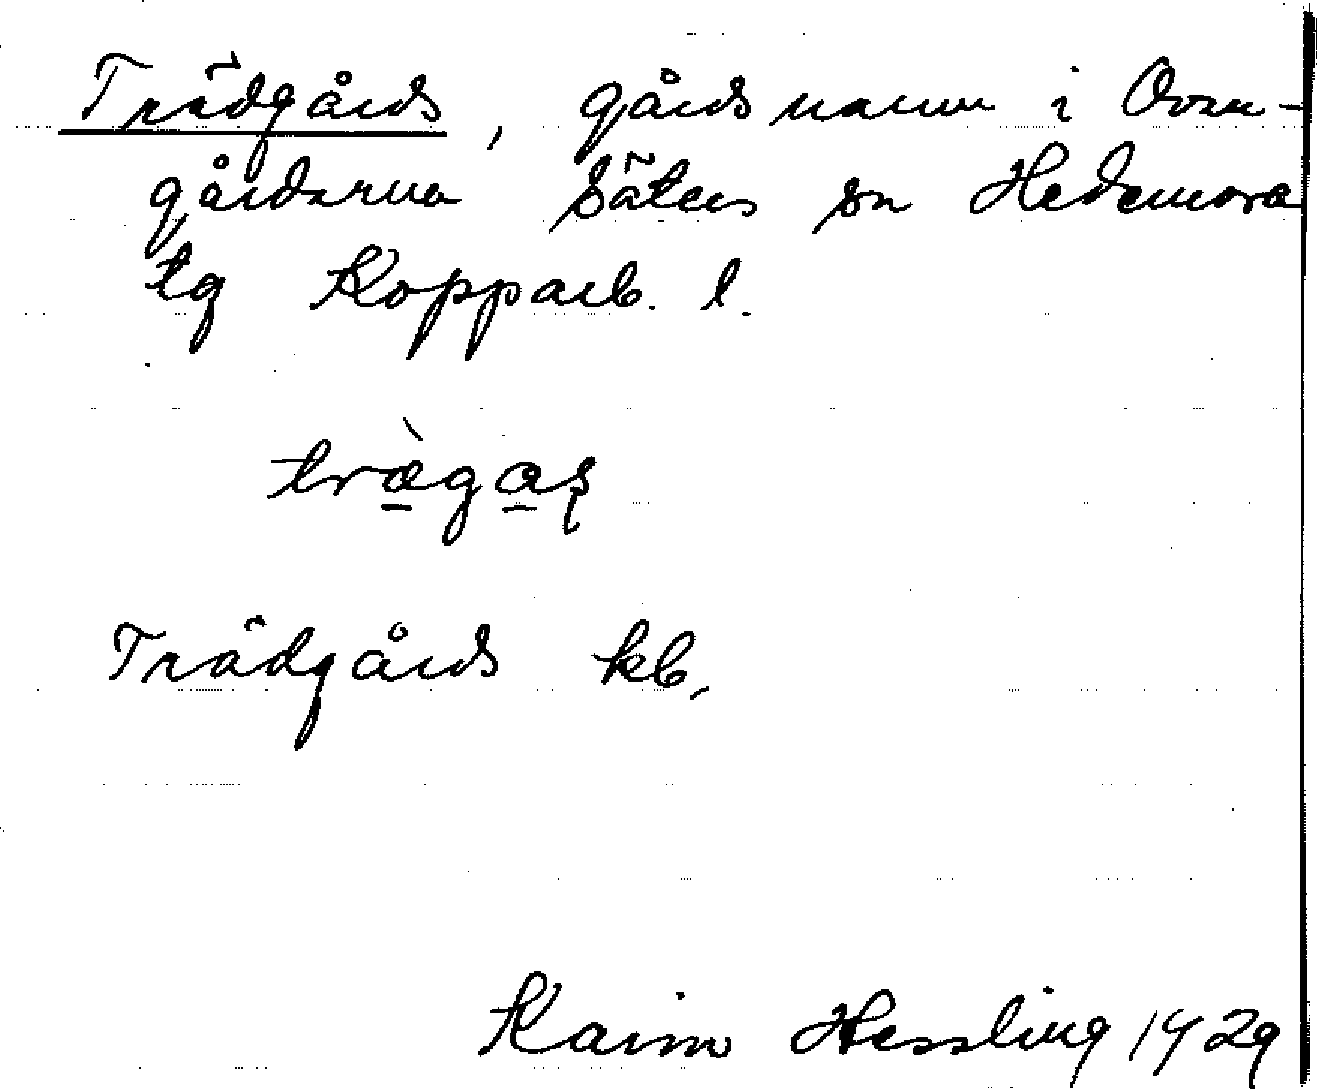 Trädgårds, gårdsnamn i Ovan-
gårdarna Säters sn Hedemora
tg Kopparb. l.
trägas
Trädgårds kb,
Karin Hessling 1929